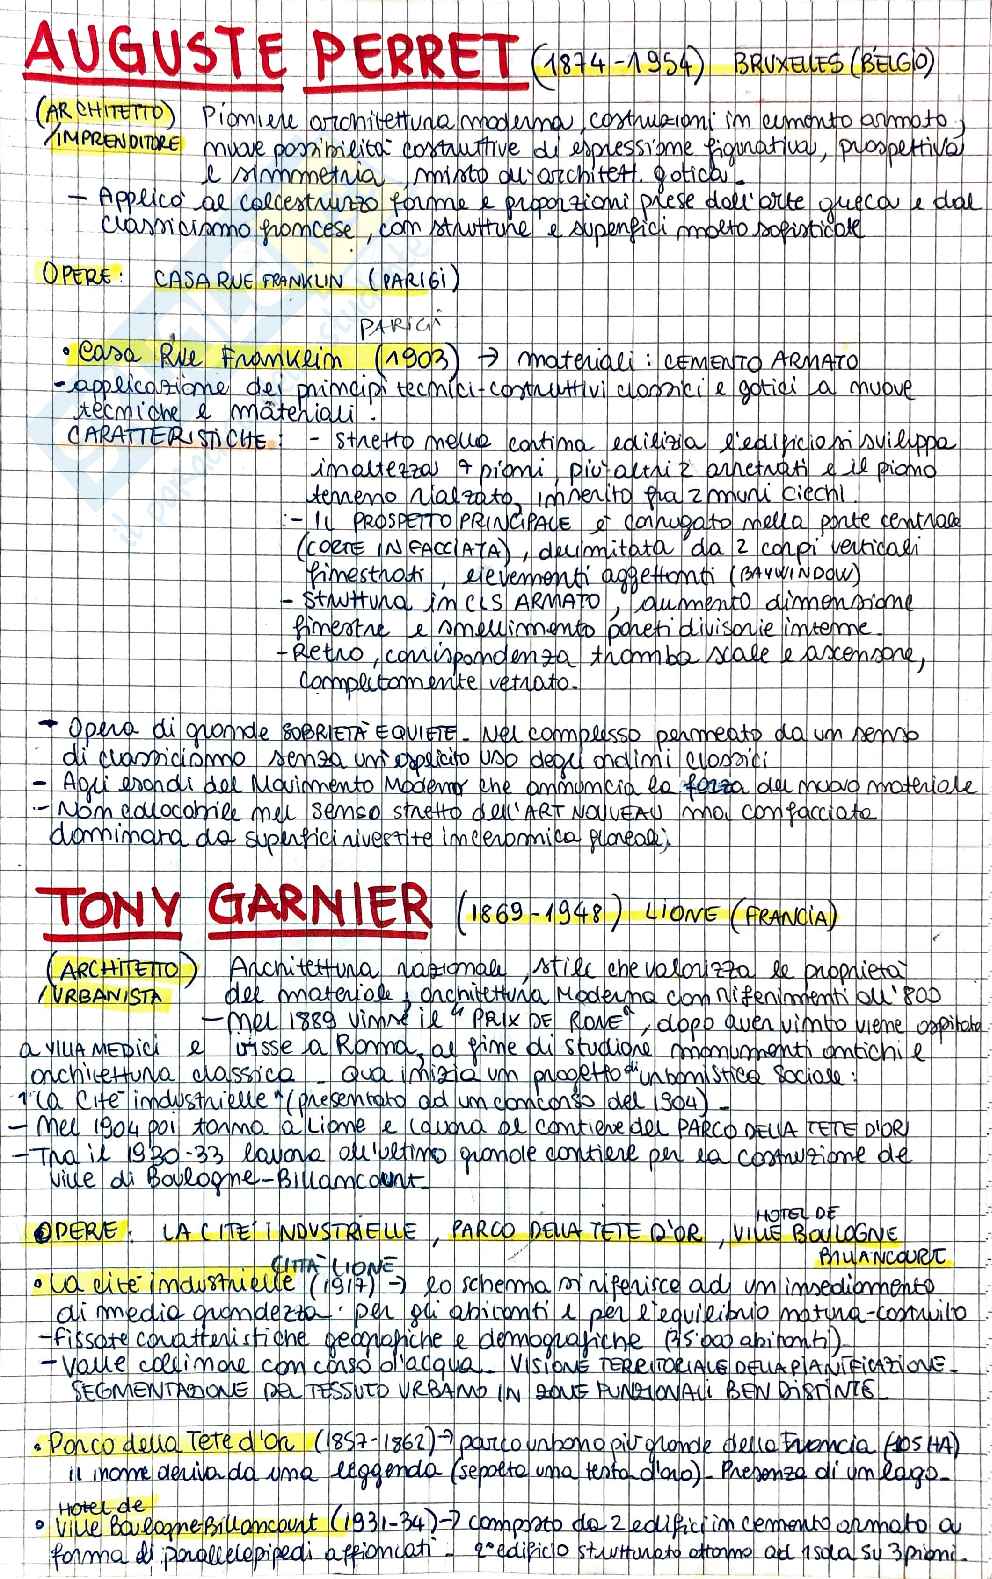 AUGUSTE PERRET (1874-1954) BRUXELLES (BELGIO)
(ARCHITETTO) Pioniere architettura moderna, costruzioni in cemento armato,
/IMPRENDITORE nuove possibilità costruttive di espressione figurativa, prospettiva
e simmetria, misto all'architett. gotica.
- Applicò al calcestruzzo forme e proporzioni prese dall'arte greca e dal
classicismo francese, con strutture e superfici molto sofisticate
OPERE: CASA RUE FRANKLIN (PARIGI)
PARIGI
• Casa Rue Franklin (1903) → materiali: CEMENTO ARMATO
- applicazione dei principi tecnici-costruttivi classici e gotici a nuove
tecniche e materiali.
CARATTERISTICHE: - stretto nella cortina edilizia l'edificio si sviluppa
in altezza 7 piani, più altri 2 arretrati e il piano
terreno rialzato, inserito fra 2 muri ciechi.
- IL PROSPETTO PRINCIPALE è corrugato nella parte centrale
(CORTE IN FACCIATA), delimitata da 2 corpi verticali
finestrati, lievemente aggettanti (BAYWINDOW)
- Struttura in CLS ARMATO, aumento dimensione
finestre e snellimento pareti divisorie interne.
- Retro, corrispondenza tromba scale e ascensore,
completamente vetrato.
- Opera di grande SOBRIETÀ E QUIETE. Nel complesso permeato da un senso
di classicismo senza un esplicito uso degli ordini classici
- Agli esordi del Movimento Moderno che annuncia la forza del nuovo materiale
- Non collocabile nel senso stretto dell'ART NOUVEAU ma con facciata
dominara da superfici rivestite in ceramica floreali;
TONY GARNIER (1869-1948) LIONE (FRANCIA)
(ARCHITETTO) Architettura razionale, stile che valorizza le proprietà
/URBANISTA del materiale, architettura Moderna con riferimenti all'800
- Nel 1889 vinse il "PRIX DE ROME", dopo aver vinto viene ospitato
a VILLA MEDICI e visse a Roma, al fine di studiare monumenti antichi e
architettura classica. Qua inizia un progetto di urbanistica sociale:
"La Cité industrielle" (presentato ad un concorso del 1904).
- Nel 1904 poi torna a Lione e lavora al cantiere del PARCO DELLA TETE D'OR
- Tra il 1930-33 lavora all'ultimo grande cantiere per la costruzione de
Ville di Boulogne-Billancourt.
HOTEL DE
OPERE: LA CITÉ INDUSTRIELLE, PARCO DELLA TETE D'OR, VILLE BOULOGNE
BILLANCOURT
CITTÀ LIONE
• La cité industrielle (1917) → lo schema si riferisce ad un insediamento
di media grandezza per gli abitanti e per l'equilibrio natura-costruito
- Fissate caratteristiche geografiche e demografiche (35.000 abitanti)
- Valle collinare con corso d'acqua. VISIONE TERRITORIALE DELLA PIANIFICAZIONE.
SEGMENTAZIONE DEL TESSUTO URBANO IN ZONE FUNZIONALI BEN DISTINTE.
• Parco della Tete d'Or (1857-1862) → parco urbano più grande della Francia (105 HA)
il nome deriva da una leggenda (sepolta una testa d'oro). Presenza di un lago.
Hotel de
• Ville Boulogne-Billancourt (1931-34) → composto da 2 edifici in cemento armato a
forma di parallelepipedi affiancati. 2° edificio strutturato attorno ad 1 sala su 3 piani.